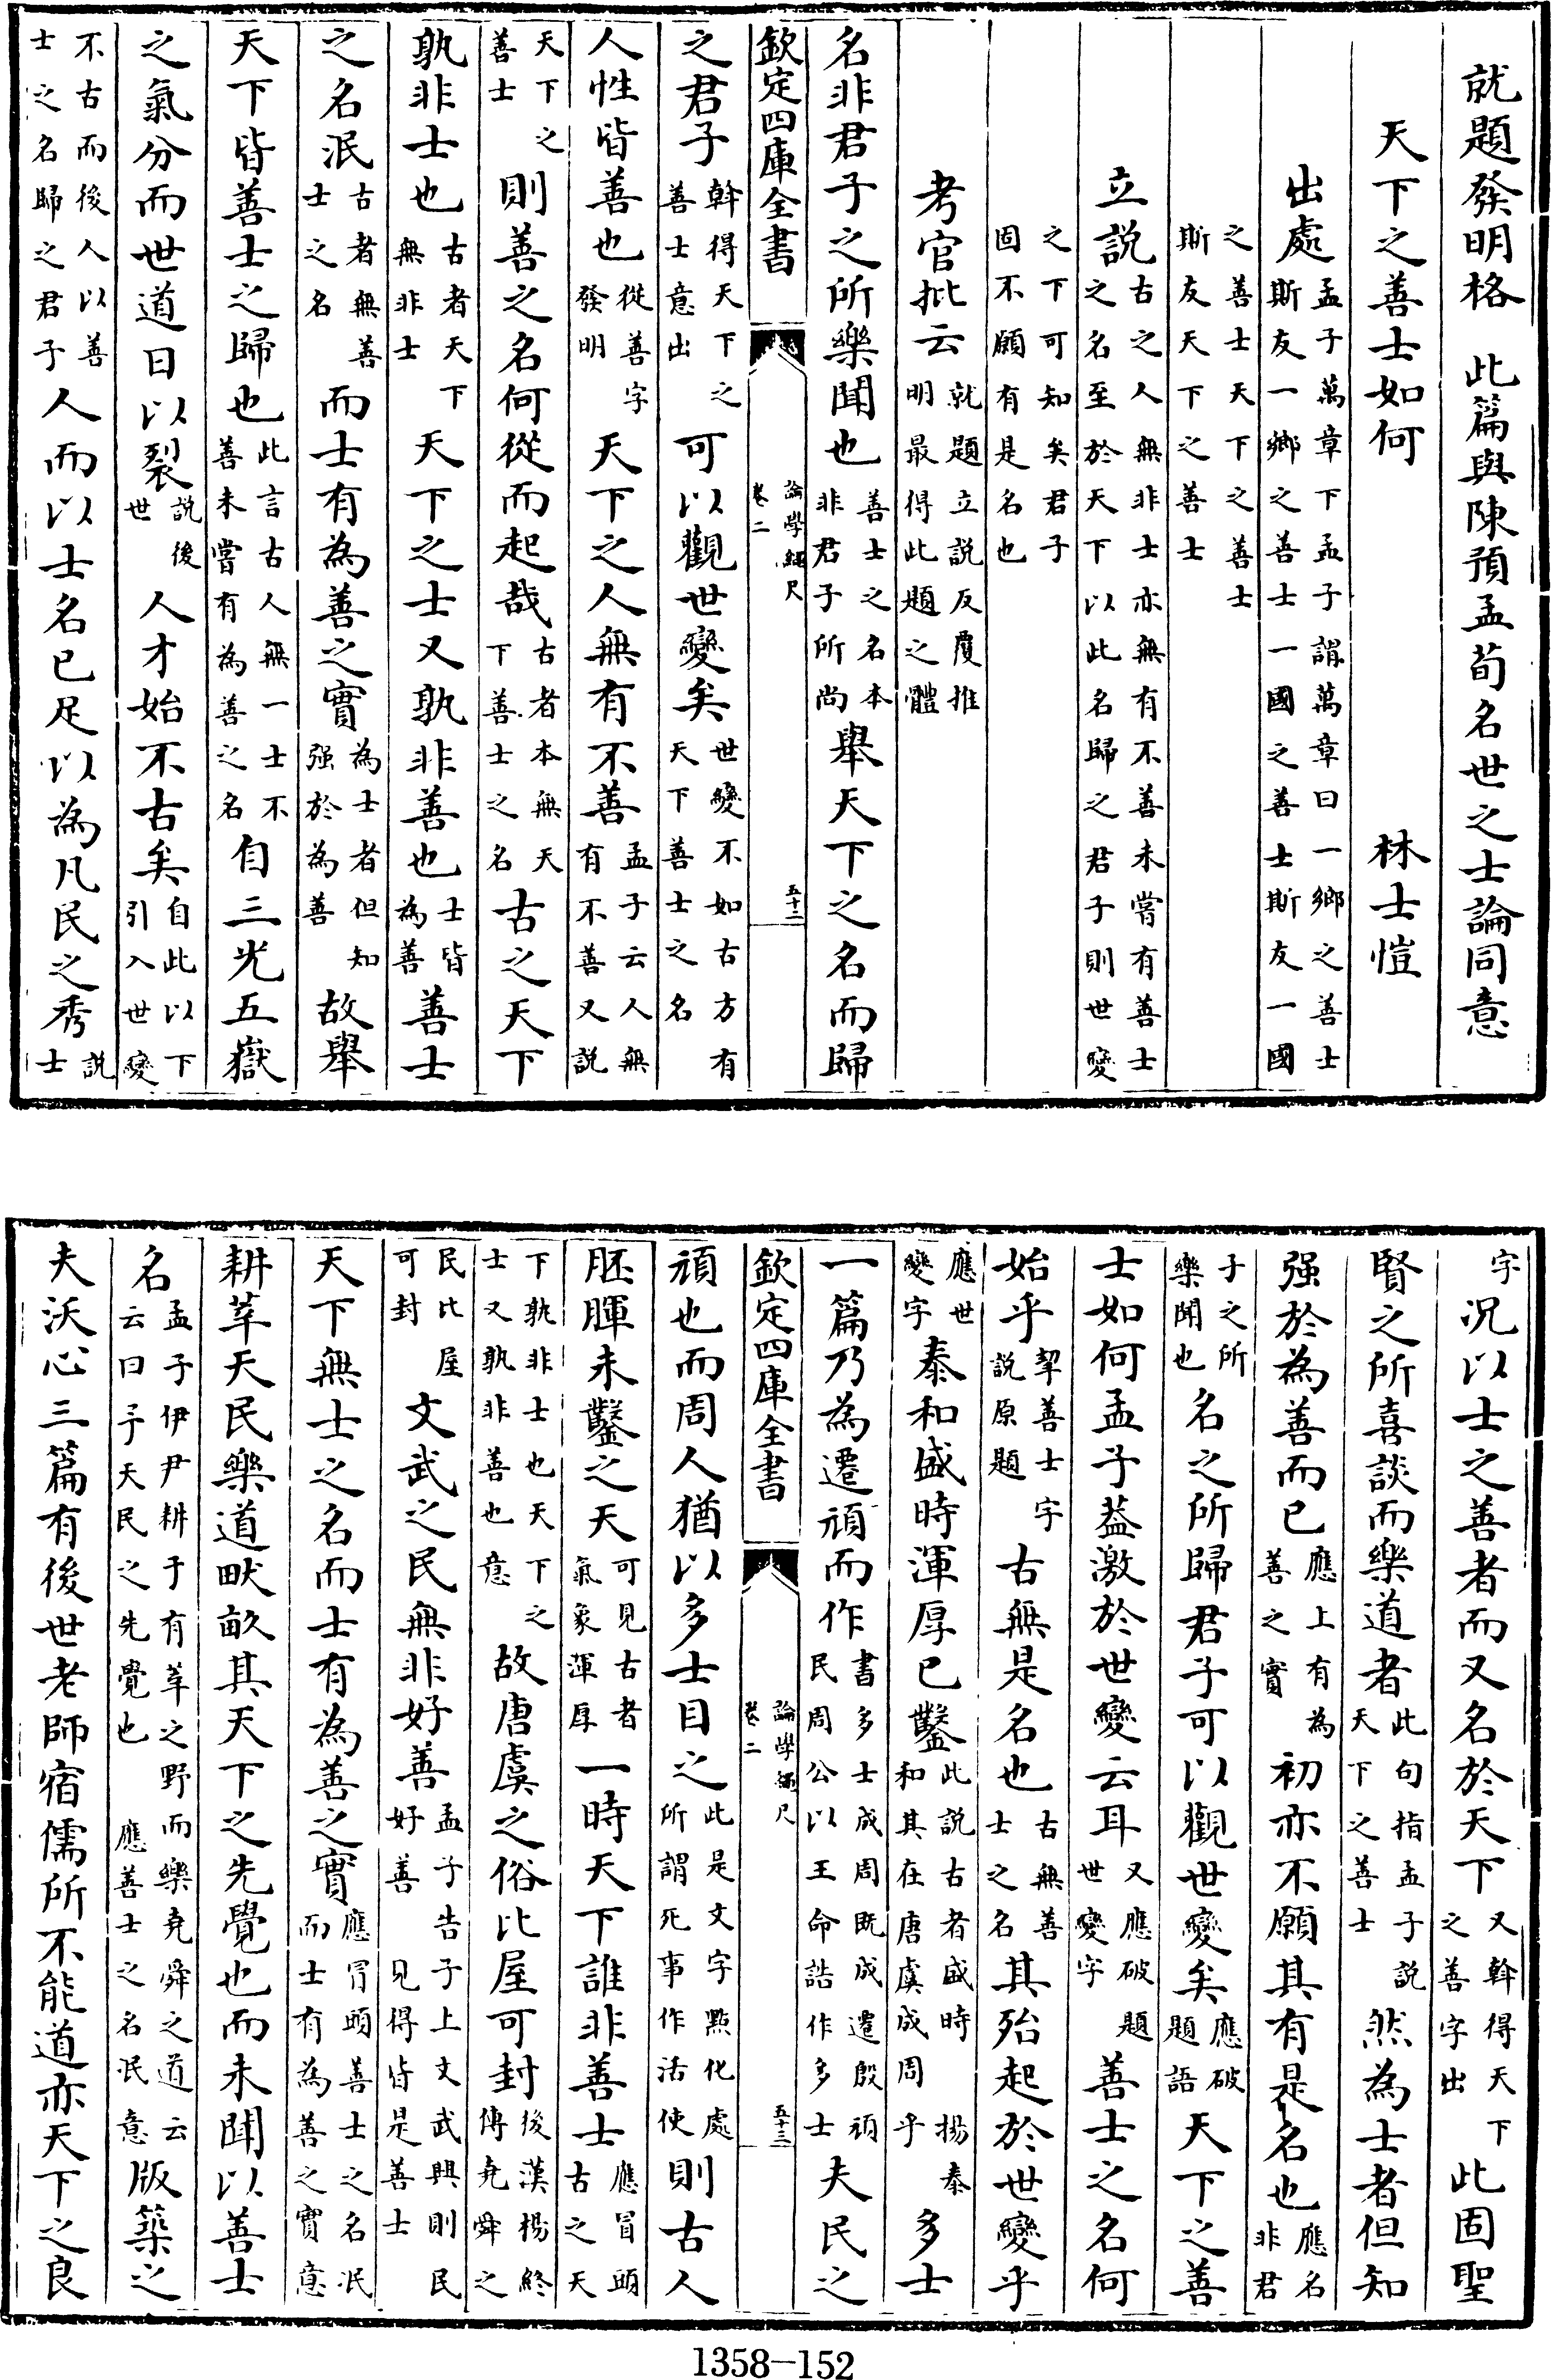 就題發明格　此篇與陳預孟荀名世之士論同意
天下之善士如何　林士愷
出處孟子萬章下孟子謂萬章曰一鄉之善士斯友一鄉之善士一國之善士斯友一國
之善士天下之善士斯友天下之善士
立説古之人無非士亦無有不善未嘗有善士之名至於天下以此名歸之君子則世變
之下可知矣君子固不願有是名也
考官批云就題立説反覆推明最得此題之體
名非君子之所樂聞也善士之名本非君子所尚舉天下之名而歸
欽定四庫全書　論學繩尺卷二　五十二
之君子斡得天下之善士意出可以觀世變矣世變不如古方有天下善士之名
人性皆善也從善字發明天下之人無有不善孟子云人無有不善又説
天下之善士則善之名何從而起哉古者本無天下善士之名古之天下
孰非士也古者天下無非士天下之士又孰非善也士皆為善善士
之名泯古者無善士之名而士有為善之實為士者但知强於為善故舉
天下皆善士之歸也此言古人無一士不善未嘗有為善之名自三光五嶽
之氣分而世道日以裂説後世人才始不古矣自此以下引入世變
不古而後人以善士之名歸之君子人而以士名已足以為凡民之秀説士
字況以士之善者而又名於天下又斡得天下之善字出此固聖
賢之所喜談而樂道者此句指孟子説天下之善士然為士者但知
强於為善而已應上有為善之實初亦不願其有是名也應名非君
子之所樂聞也名之所歸君子可以觀世變矣應破題語天下之善
士如何孟子葢激於世變云耳又應破題世變字善士之名何
始乎挈善士字説原題古無是名也古無善士之名其殆起於世變乎
應世變字泰和盛時渾厚已鑿此説古者盛時和其在唐虞成周乎揚泰多士
一篇乃為遷頑而作書多士成周既成遷殷頑民周公以王命誥作多士夫民之
欽定四庫全書　論學繩尺卷二　五十三
頑也而周人猶以多士目之此是文字點化處所謂死事作活使則古人
胚腪未鑿之天可見古者氣象渾厚一時天下誰非善士應冒頭古之天
下孰非士也天下之士又孰非善也意故唐虞之俗比屋可封後漢楊終傳堯舜之
民比屋可封文武之民無非好善孟子告子上文武興則民好善見得皆是善士
天下無士之名而士有為善之實應冒頭善士之名泯而士有為善之實意
耕莘天民樂道畎畝其天下之先覺也而未聞以善士
名孟子伊尹耕于有莘之野而樂堯舜之道云云曰予天民之先覺也應善士之名泯意版築之
夫沃心三篇有後世老師宿儒所不能道亦天下之良
1358-152